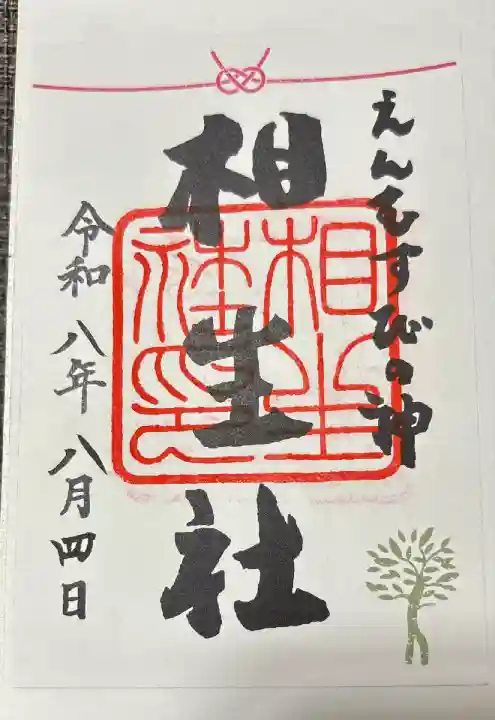 えんむすびの神
相生社
相生社印
令和八年八月四日